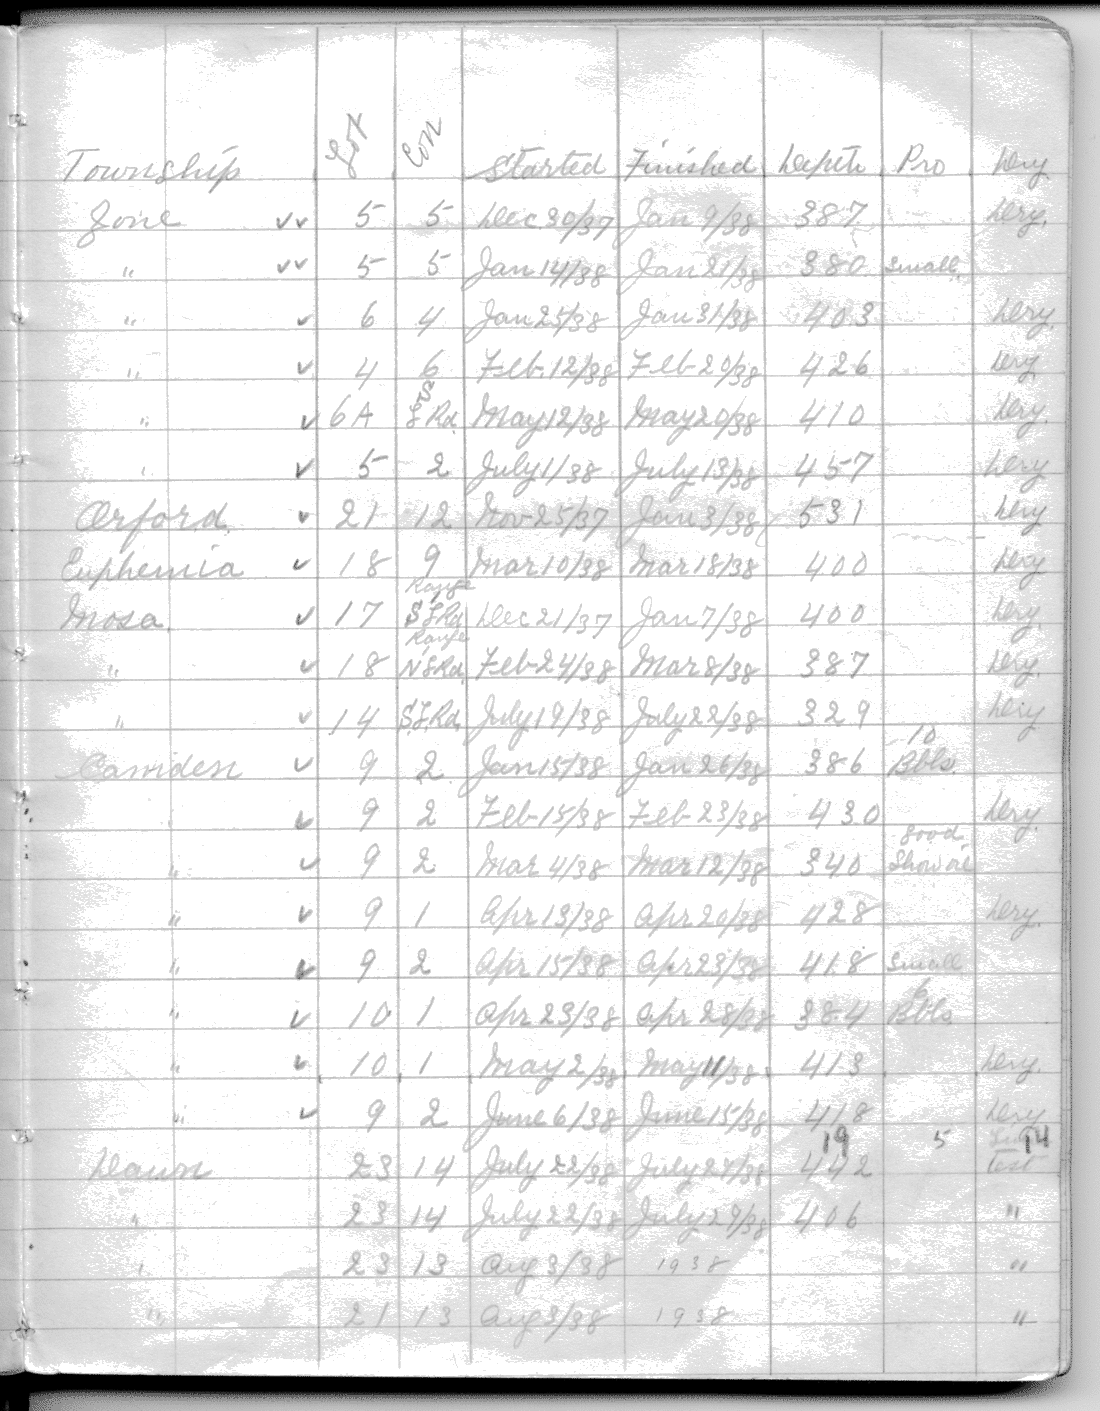 Township Lot Con Started Finished Depth Pro Dry
Zone ✓✓ 5 5 Dec 30/37 Jan 9/38 387 Dry.
" ✓✓ 5 5 Jan 14/38 Jan 21/38 380 Small
" ✓ 6 4 Jan 25/38 Jan 31/38 403 Dry.
" ✓ 4 6 Feb-12/38 Feb-20/38 426 Dry.
" ✓ 6A L Rd. May 12/38 May 20/38 410 Dry.
" ✓ 5 2 July 1/38 July 13/38 457 Dry
Orford. ✓ 21 12 Nov-25/37 Jan 3/38 531 Dry
Euphemia ✓ 18 9 Mar 10/38 Mar 18/38 400 Dry
Range
Mosa. ✓ 17 S L Rd. Dec 21/37 Jan 7/38 400 Dry.
Range
" ✓ 18 N L Rd. Feb-24/38 Mar 8/38 387 Dry.
" ✓ 14 S. L. Rd. July 19/38 July 22/38 329 Dry
10
Camden ✓ 9 2 Jan 15/38 Jan 26/38 386 Bbls.
" ✓ 9 2 Feb-15/38 Feb-23/38 430 Dry.
good
" ✓ 9 2 Mar 4/38 Mar 12/38 340 Show oil
" ✓ 9 1 Apr 13/38 Apr 20/38 428 Dry.
" ✓ 9 2 Apr 15/38 Apr 23/38 418 Small
6
" ✓ 10 1 Apr 23/38 Apr 28/38 384 Bbls.
" ✓ 10 1 May 2/38 May 11/38 413 Dry.
" ✓ 9 2 June 6/38 June 15/38 418 Dry
19 5 14
Dawn 23 14 July 22/38 July 27/38 442 Test
" 23 14 July 22/38 July 29/38 406 "
" 23 13 Aug 3/38 1938 "
" 21 13 Aug 3/38 1938 "